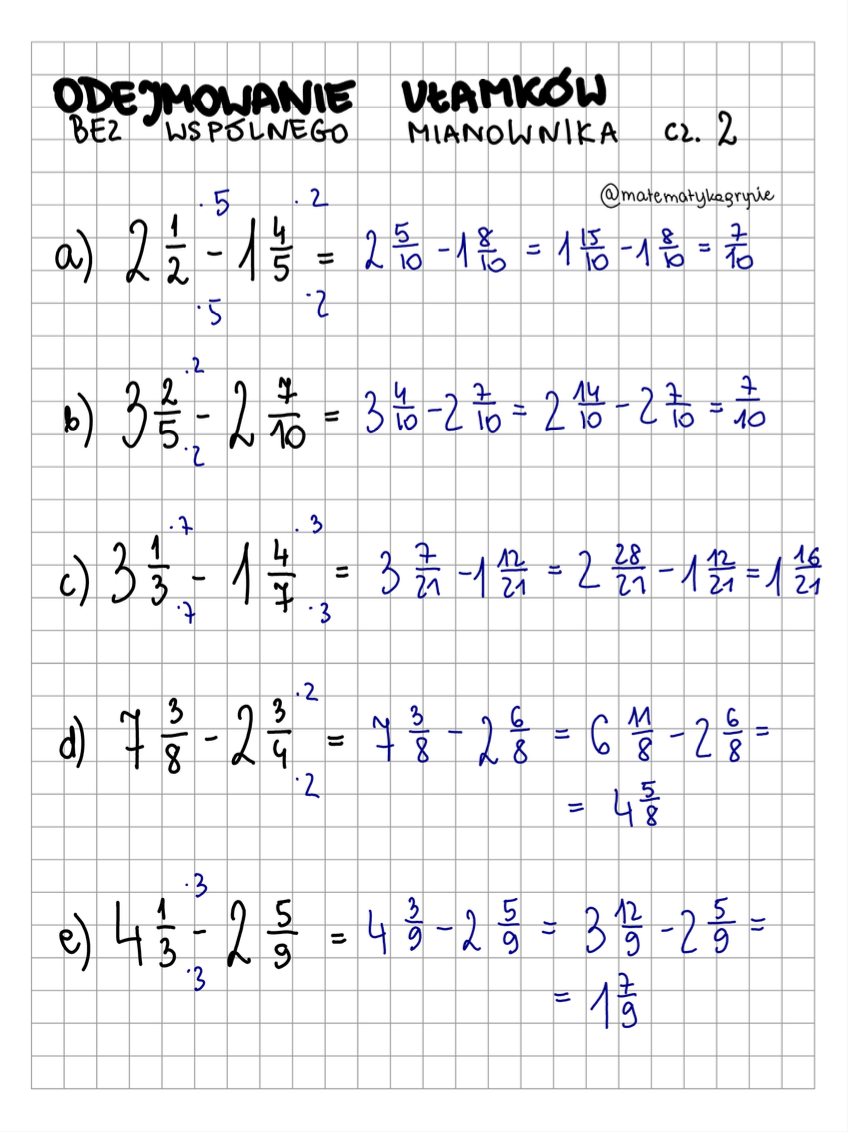 ODEJMOWANIE UŁAMKÓW
BEZ WSPÓLNEGO MIANOWNIKA CZ. 2
@matematykagryzie
·5 ·2
a) 2 1/2 - 1 4/5 = 2 5/10 - 1 8/10 = 1 15/10 - 1 8/10 = 7/10
·5 ·2
·2
b) 3 2/5 - 2 7/10 = 3 4/10 - 2 7/10 = 2 14/10 - 2 7/10 = 7/10
·2
·7 ·3
c) 3 1/3 - 1 4/7 = 3 7/21 - 1 12/21 = 2 28/21 - 1 12/21 = 1 16/21
·7 ·3
·2
d) 7 3/8 - 2 3/4 = 7 3/8 - 2 6/8 = 6 11/8 - 2 6/8 =
·2
= 4 5/8
·3
e) 4 1/3 - 2 5/9 = 4 3/9 - 2 5/9 = 3 12/9 - 2 5/9 =
·3
= 1 7/9